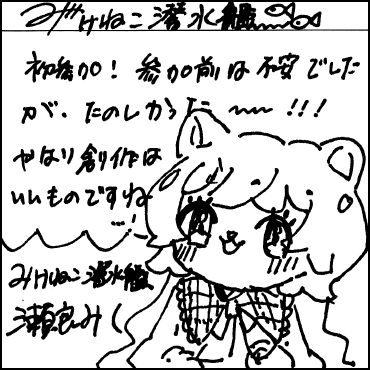 みけねこ潜水艦
初参加！参加前は不安でした
が、たのしかった〜〜!!!
やはり創作は
いいものですね
…!
みけねこ潜水艦
瀬良みく